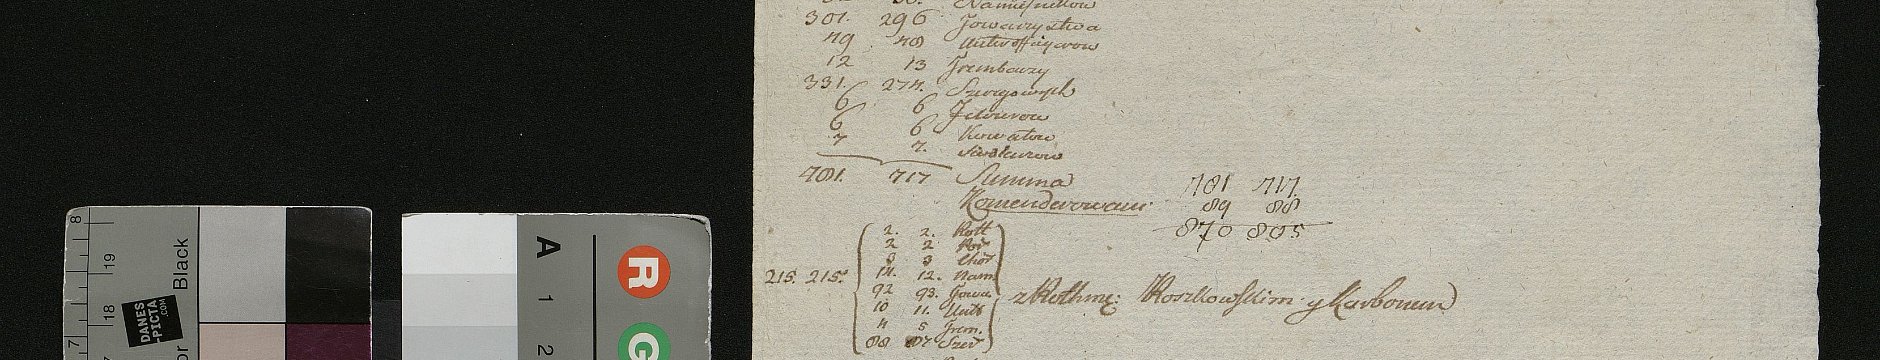 301. 296 Towarzystwa
49 48 Unterofficyerow
12 13 Trembaczy
331. 274. Szeregowych
6 6 Felczerow
6 6 Kowalow
7 7.
781. 717 Summa
781 717.
Komenderowani
89 88
870 805
2. 2. Rott
2 2 Por
3 3 Chor
14. 12. Nam
215. 215.
92 93. Towa
z Rothmę: Koszkowskim y Karbonem
10 11. Unt
4 5 Trem.
88 87 Szer
8
19
18
7
Black
or
DANES
-PICTA
.COM
A
1
2
R
G